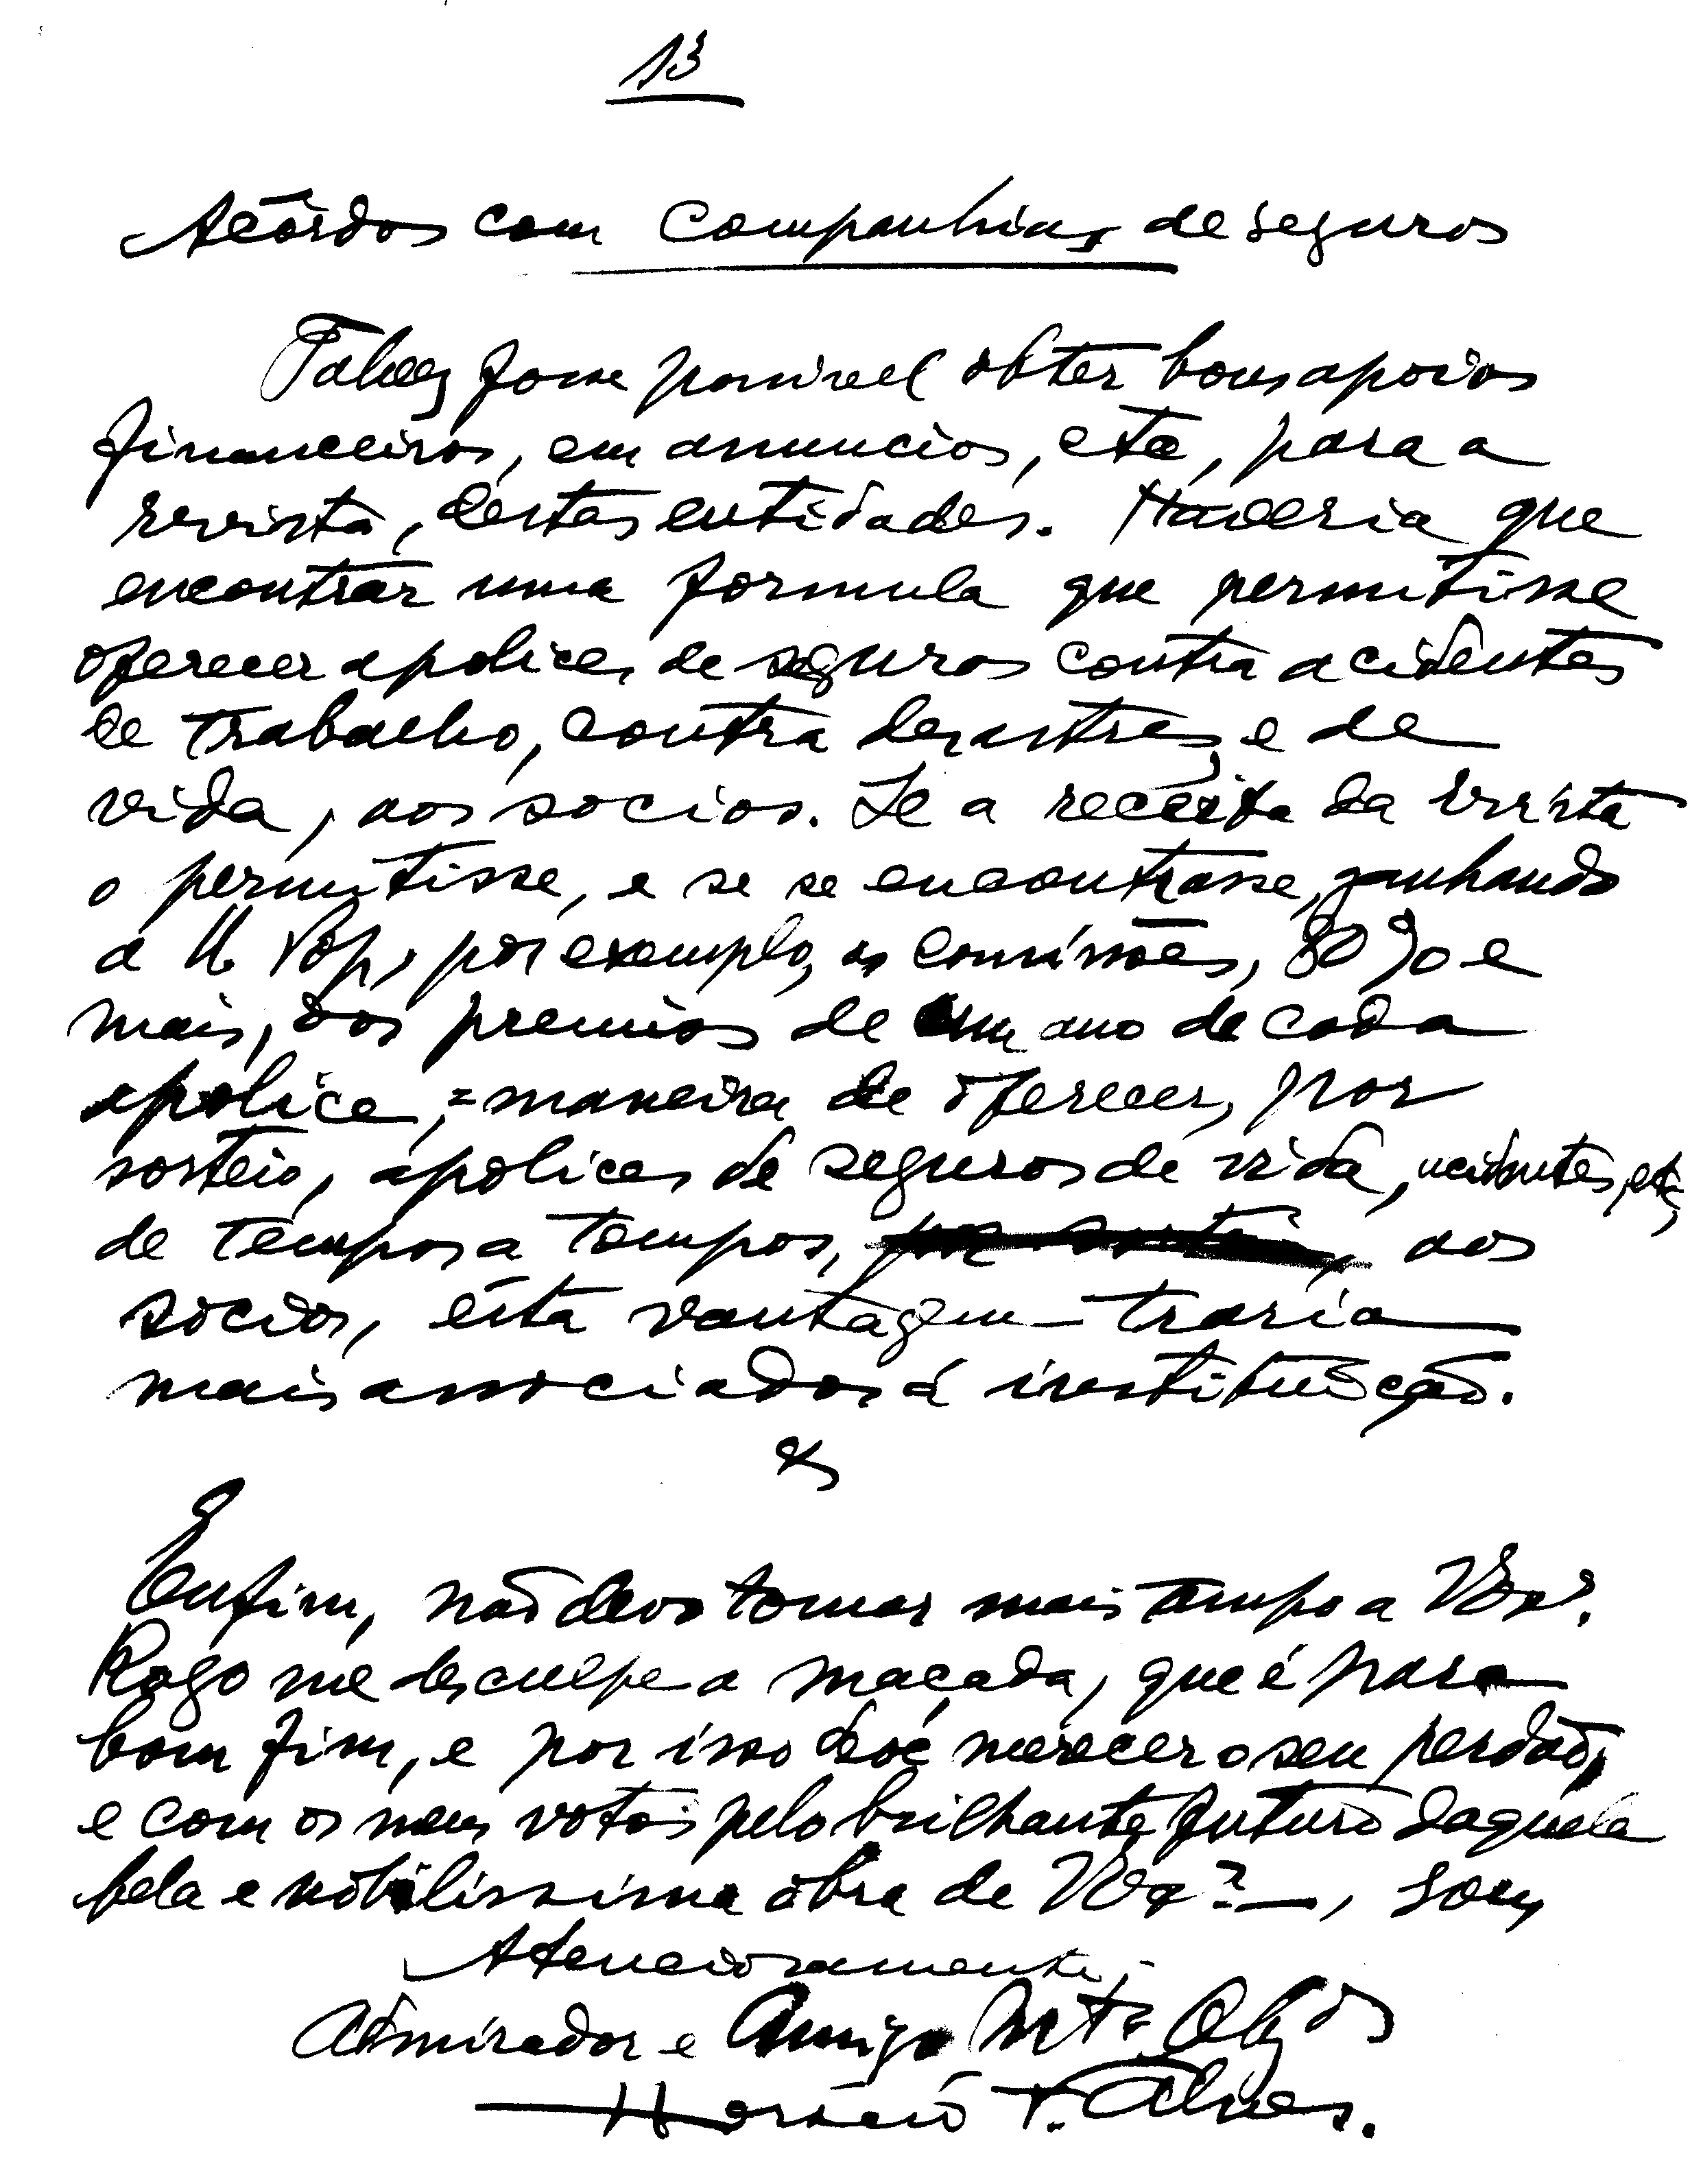 13
Acôrdos com Companhias de seguros
Talvez fosse possivel obter bons apoios
financeiros, em anuncios, etc, para a
revista, destas entidades. Haveria que
encontrar uma formula que permitisse
oferecer apolices de seguros contra acidentes
de trabalho, contra desastres, e de
vida, aos socios. Se a receita da revista
o permitisse, e se se encontrasse, ganhando
a U. Pop, por exemplo, as comissões, 80% e
mais, dos premios de um ano de cada
apolice, = maneira de oferecer, por
sorteio, apolices de seguros de vida, acidentes, etc,
de tempos a tempos, aos
socios, ésta vantagem traria
mais associados á instituição.
Enfim, não devo tomar mais tempo a VExª.
Rogo me desculpe a maçada, que é para
bom fim, e por isso deve merecer o seu perdão,
e com os meus votos pelo brilhante futuro daquela
bela e nobilissima obra de VExª, sou,
Atenciosamente,
Admirador e Amigo Mtº Obgdo
Horácio T. Alves.